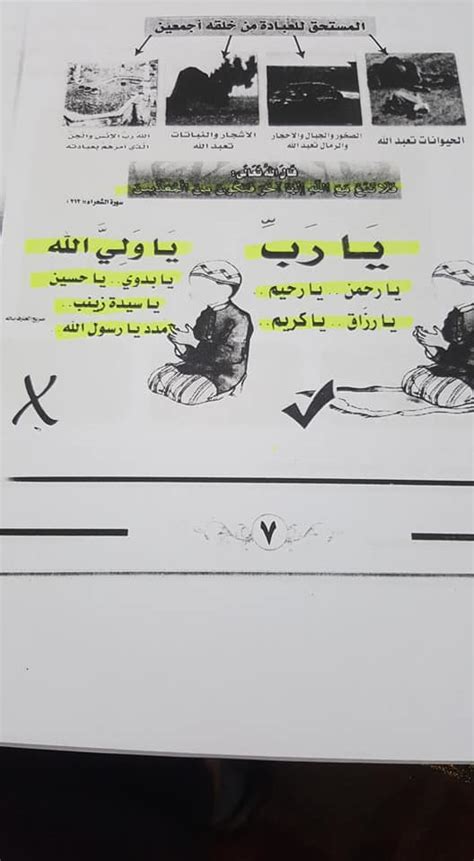 المستحق للعبادة من خلقه أجمعين
الحيوانات تعبد الله
الصخور والجبال والاحجار
والرمال تعبد الله
الاشجار والنباتات
تعبد الله
الله رب الانس والجن
الذي امرهم بعبادته
قال الله تعالى:
فلا تدع مع الله إلها آخر فتكون من المعذبين
سورة الشعراء: (٢١٣)
يا رب
يا رحمن .. يا رحيم ..
يا رزاق .. يا كريم ..
يا وليَّ الله
يا بدوي .. يا حسين
يا سيدة زينب ..
مدد يا رسول الله ..
٧